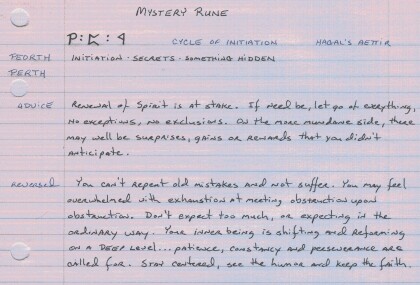 MYSTERY RUNE
P : ᛈ : ꟼ CYCLE OF INITIATION HAGAL'S AETTIR
PEORTH INITIATION · SECRETS · SOMETHING HIDDEN
PERTH
ADVICE Renewal of Spirit is at stake. If need be, let go of everything,
no exceptions, no exclusions. On the more mundane side, there
may well be surprises, gains or rewards that you didn't
anticipate.
REVERSED You can't repeat old mistakes and not suffer. You may feel
overwhelmed with exhaustion at meeting obstruction upon
obstruction. Don't expect too much, or expecting in the
ordinary way. Your inner being is shifting and reforming
on a DEEP level... patience, constancy and perseverance are
called for. Stay centered, see the humor and keep the faith.